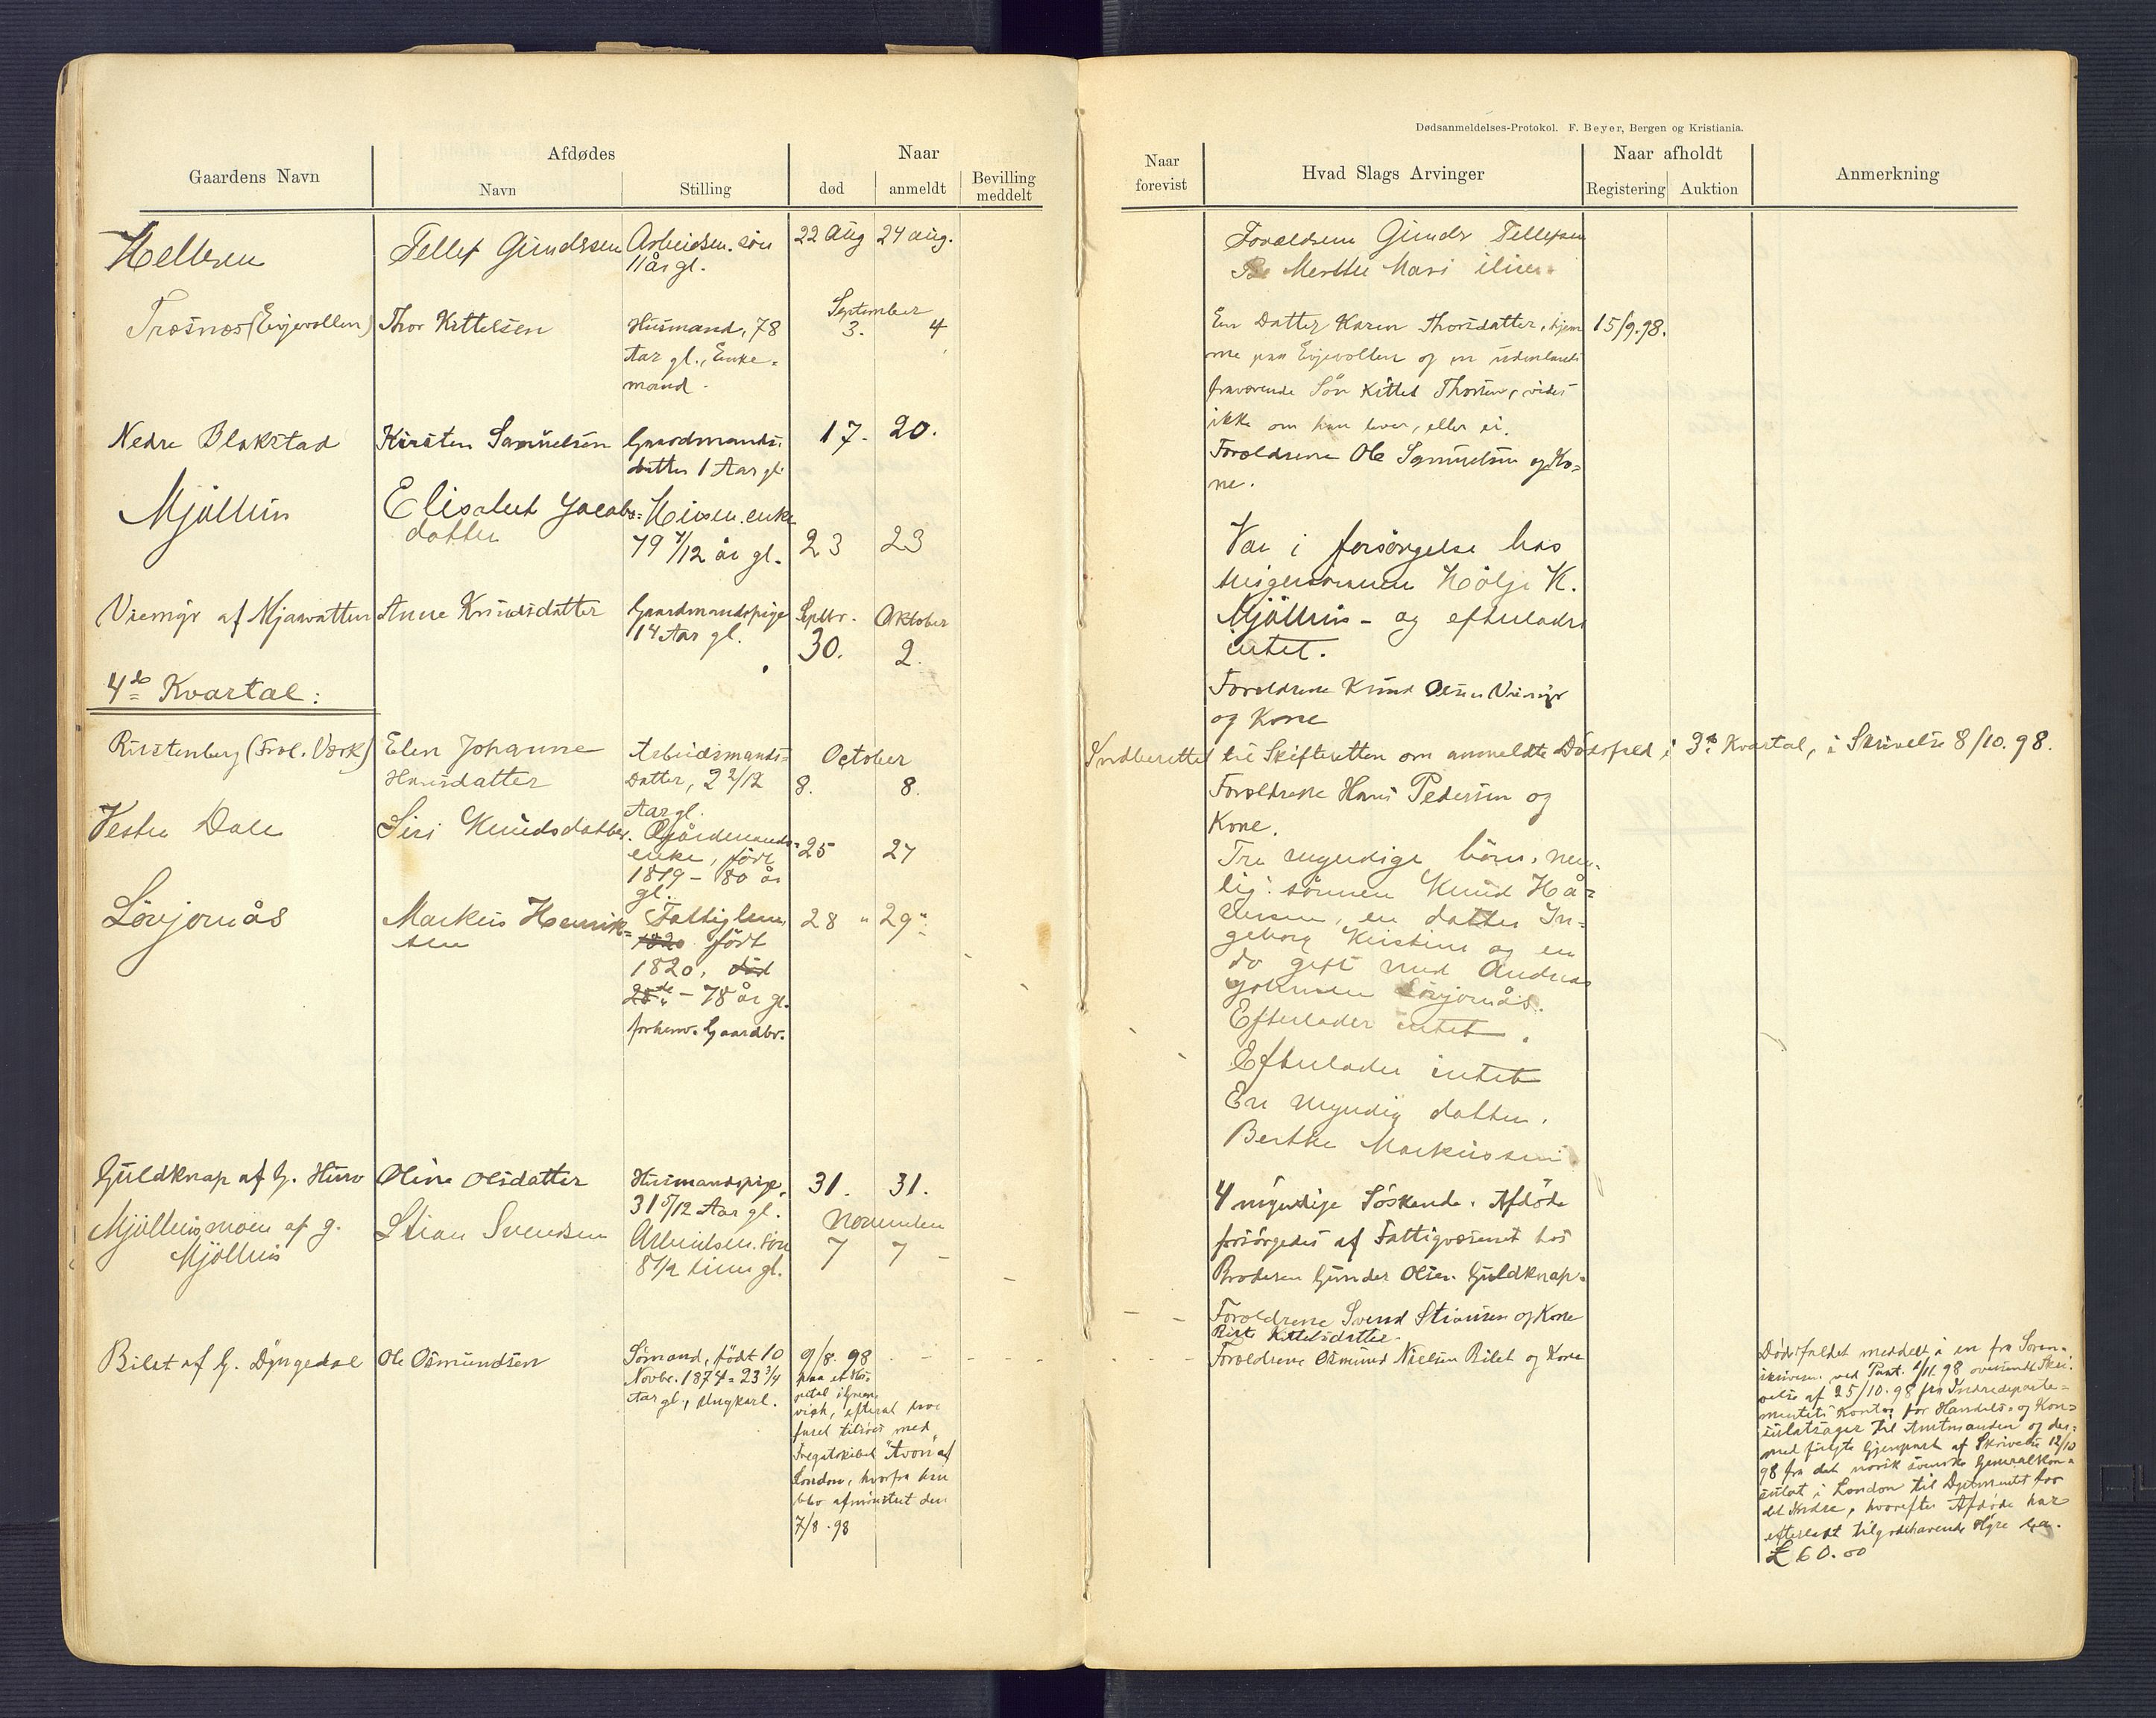 Dødsanmeldelses-Protokol. F. Beyer, Bergen og Kristiania.
Gaardens Navn
Afdødes
Navn
Stilling
Naar
død
anmeldt
Bevilling
meddelt
Naar
forevist
Hvad Slags Arvinger
Naar afholdt
Registering
Auktion
Anmerkning
Tellef Gundersen Arbeidsm. søn 22 Aug 24 aug.
11 år gl.
Forældrene Gunder Tellefsen
Merthe Mari
Træsnæs (Eigevollen) Thor Kittelsen Husmand, 78
Aar gl., Enke=
mand.
September
3. 4
En Datter Karen Thorsdatter, hjem
me paa Eigevollen og en udenlands
fraværende Søn Kittel Thorsen, vides
ikke om han lever, eller ei.
15/9.98.
Nedre Blakstad Kirsten Samuelsen Gaardmands
datter 1 Aar gl. 17. 20.
Forældrene Ole Samuelsen og Ko=
ne.
Mjølhus Elisabet Jacobs=
datter
Husm. enke
79 7/12 år gl. 23 23
Var i forsørgelse hos
Hølje K.
Mjølhus - og efterlader
intet.
Viemyr af Mjavatten Anne Knudsdatter Gaardmandspige
14 Aar gl. Septbr. 30. Oktober 2.
Forældrene Knud Olsen Viemyr
og Kone
4de Kvartal:
Indberettet til Skifteretten om anmeldte Dødsfald i 3die Kvartal, i Skrivelse 8/10.98.
(Frol. Værk) Elen Johanne
Hansdatter
Arbeidsmands=
Datter, 2 2/12
Aar gl.
October
8. 8.
Forældrene Hans Pedersen og
Kone.
Vestre Dale Siri Knudsdatter. Gårdmands=
enke, født
1819 - 80 år
gl. 25 27
Tre myndige børn, nem=
lig: sønnen Knud
en datter In=
geborg Kristine og en
do gift med Andreas
Johnsen Løvjomås.
Efterlader intet.
Løvjomås Markus Henrik=
sen
Fattiglem,
1820 født
1820, død
28de - 78 år gl.
forhenv. Gaardbr.
28 " 29 "
Efterlader intet
En myndig datter,
Berthe Markussen
Guldknap af G. Oline Olsdatter Husmandspige,
31 5/12 Aar gl. 31. 31.
4 myndige Søskende. Afdøde
forsørgedes af Fattigvæsenet hos
Broderen Gunder Olsen Guldknap.
Mjølhusmoen af g.
Mjølhus
Stian Svendsen Arbeidsm. søn
8 1/2 time gl.
November
7 7 -
Forældrene Svend Stiansen og Kone
Birte Kittelsdatter.
Bilet af G. Dyngedal Ole Osmundsen Sømand, født 10
Novbr. 1874 = 23 3/4
Aar gl., Ungkarl.
9/8. 98
paa et Hos=
pital i Green=
wich, efterat
faret tilsøes med
Fregatskibet "Avon" af
London, hvorfra han
blev afmønstret den
7/8. 98
Forældrene Osmund Nielsen Bilet og Kone
Dødsfaldet meddelt i en fra Soren=
skriveren ved 98 oversendt Skri=
velse af 25/10.98 fra Indredeparte=
mentets Kontor for Handels= og Kon=
sulatsager til Amtmanden og der=
med fulgte Gjenpart af Skrivelse 12/10
98 fra det norsk svenske Generalkon=
sulat i London til Dptmentet for
det Indre, hvorefter Afdøde har
efterladt tilgodehavende Hyre ca.
£ 60.00